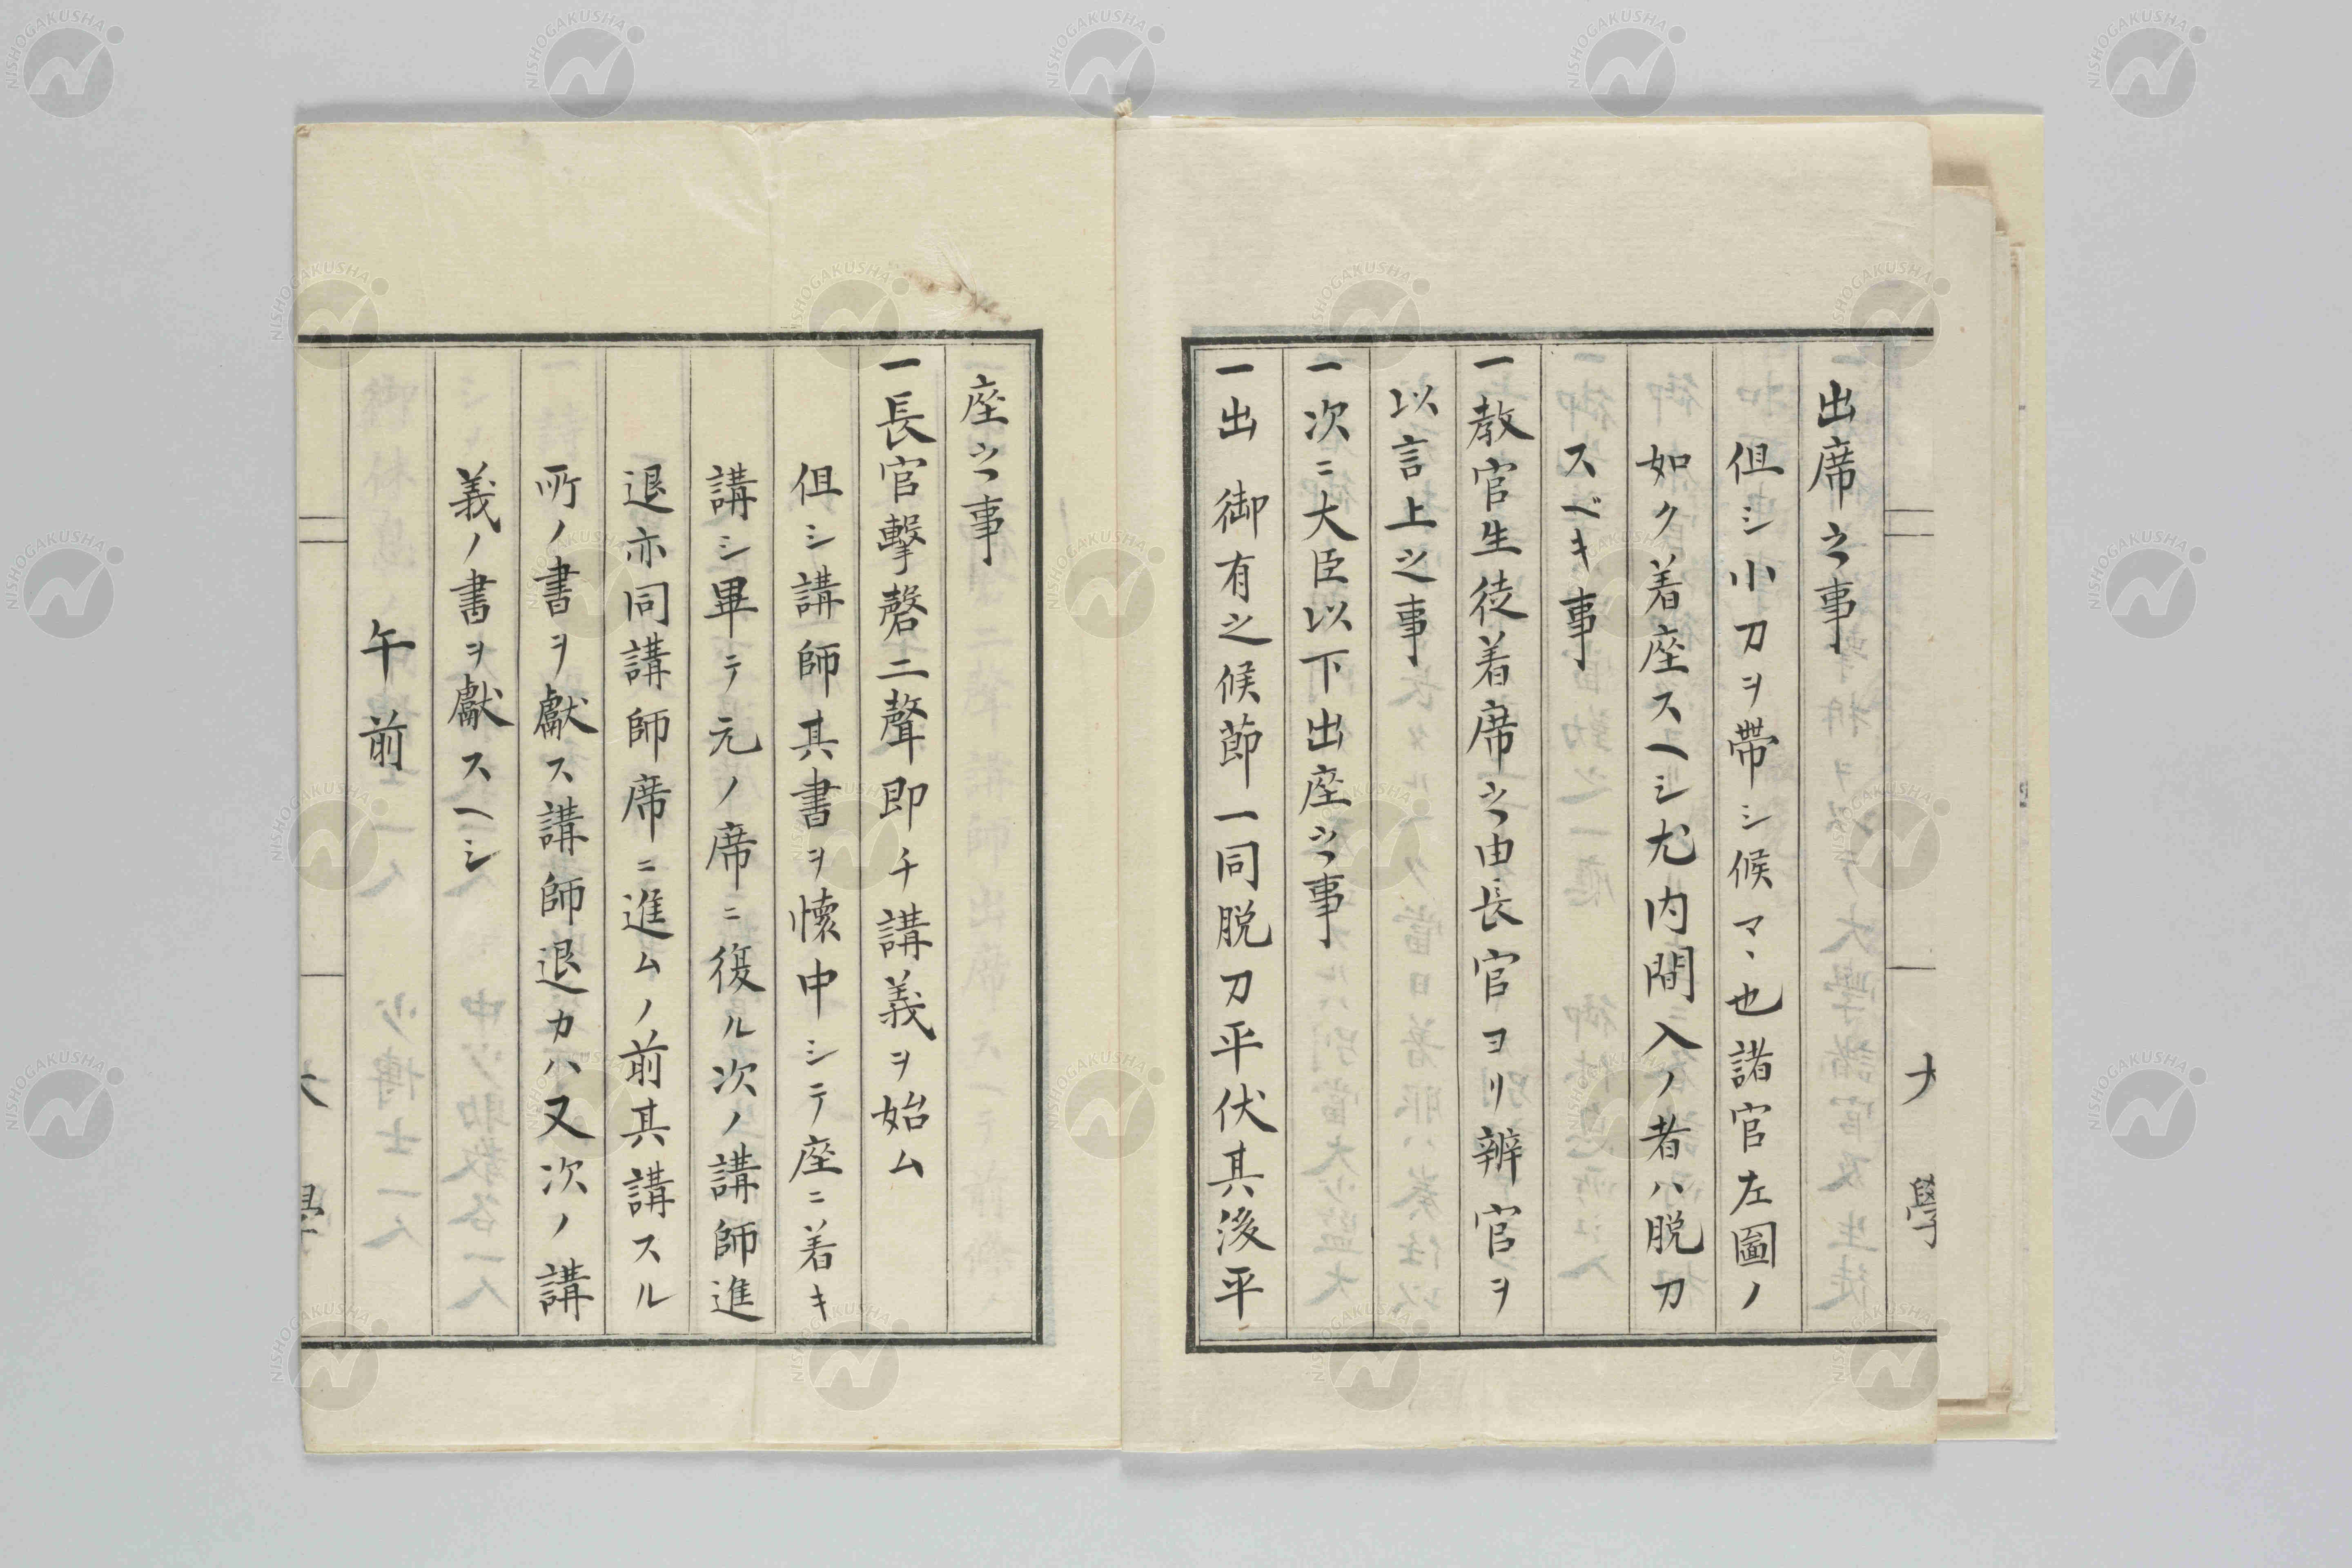 出席之事
但シ小刀ヲ帶シ候マヽ也諸官左圖ノ
如ク着座スヘシ尤内閤入ノ者ハ脱刀
スベキ事
一教官生徒着席之由長官ヨリ辨官ヲ
以言上之事
一次ニ大臣以下出座之事
一出 御有之候節一同脱刀平伏其後平
大學
座之事
一長官擊磬二聲即チ講義ヲ始ム
但シ講師其書ヲ懷中シテ座ニ着キ
講シ畢テ元ノ席ニ復ル次ノ講師進
退亦同講師席ニ進ムノ前其講スル
所ノ書ヲ獻ス講師退カハ又次ノ講
義ノ書ヲ獻スヘシ
午前
大學
NISHOGAKUSHA